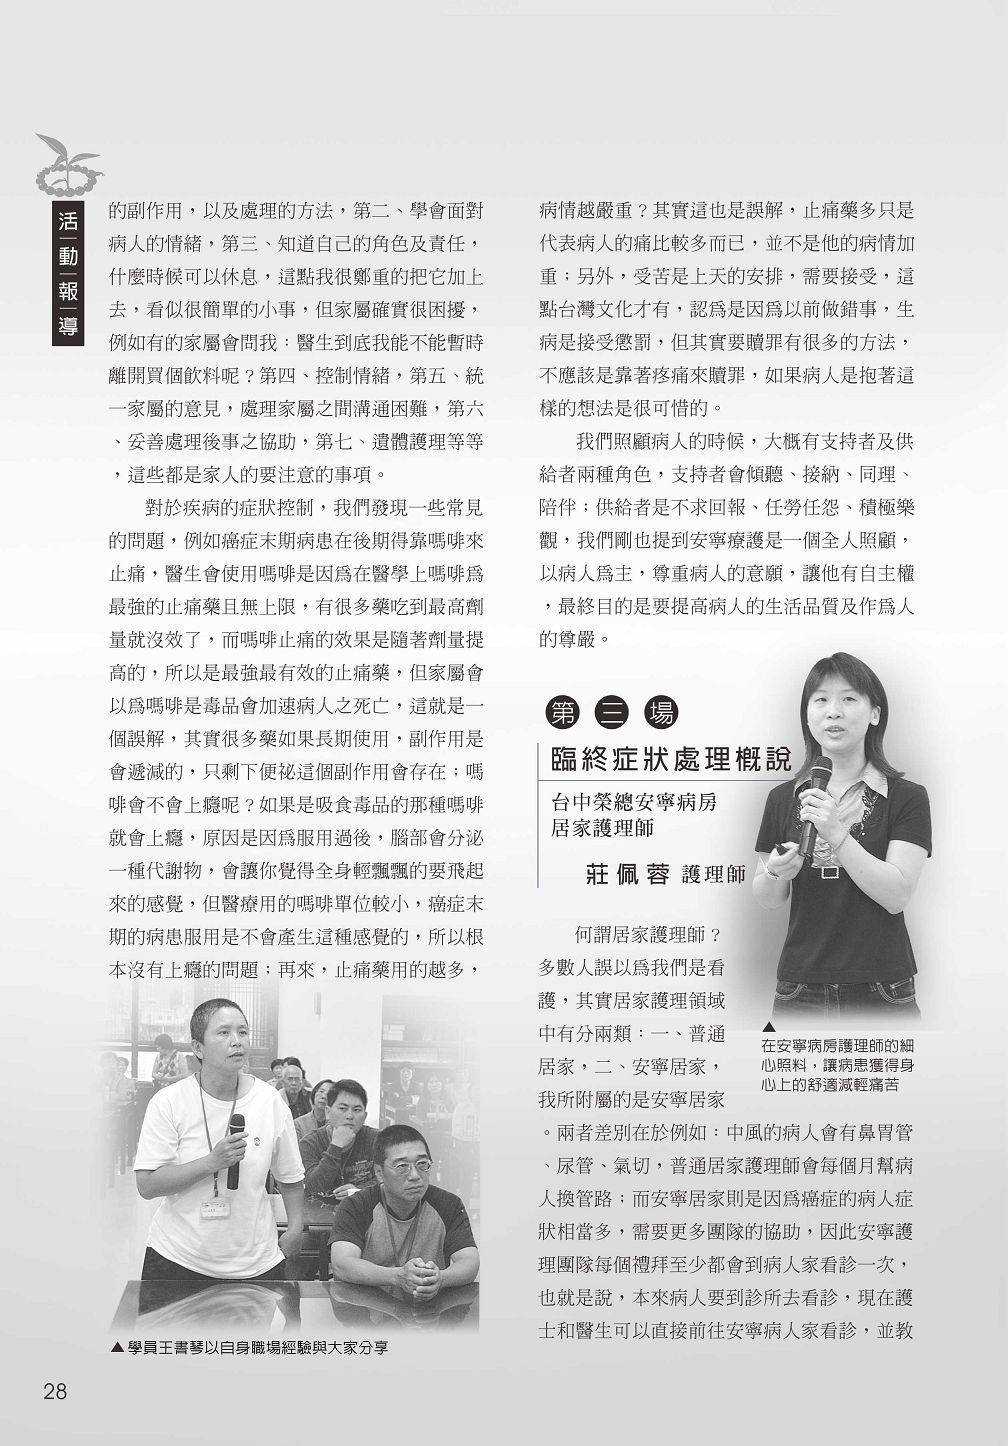 活動報導
的副作用，以及處理的方法，第二、學會面對
病人的情緒，第三、知道自己的角色及責任，
什麼時候可以休息，這點我很鄭重的把它加上
去，看似很簡單的小事，但家屬確實很困擾，
例如有的家屬會問我：醫生到底我能不能暫時
離開買個飲料呢？第四、控制情緒，第五、統
一家屬的意見，處理家屬之間溝通困難，第六
、妥善處理後事之協助，第七、遺體護理等等
，這些都是家人的要注意的事項。
對於疾病的症狀控制，我們發現一些常見
的問題，例如癌症末期病患在後期得靠嗎啡來
止痛，醫生會使用嗎啡是因為在醫學上嗎啡為
最強的止痛藥且無上限，有很多藥吃到最高劑
量就沒效了，而嗎啡止痛的效果是隨著劑量提
高的，所以是最強最有效的止痛藥，但家屬會
以為嗎啡是毒品會加速病人之死亡，這就是一
個誤解，其實很多藥如果長期使用，副作用是
會遞減的，只剩下便祕這個副作用會存在；嗎
啡會不會上癮呢？如果是吸食毒品的那種嗎啡
就會上癮，原因是因為服用過後，腦部會分泌
一種代謝物，會讓你覺得全身輕飄飄的要飛起
來的感覺，但醫療用的嗎啡單位較小，癌症末
期的病患服用是不會產生這種感覺的，所以根
本沒有上癮的問題；再來，止痛藥用的越多，
▲學員王書琴以自身職場經驗與大家分享
病情越嚴重？其實這也是誤解，止痛藥多只是
代表病人的痛比較多而已，並不是他的病情加
重；另外，受苦是上天的安排，需要接受，這
點台灣文化才有，認為是因為以前做錯事，生
病是接受懲罰，但其實要贖罪有很多的方法，
不應該是靠著疼痛來贖罪，如果病人是抱著這
樣的想法是很可惜的。
我們照顧病人的時候，大概有支持者及供
給者兩種角色，支持者會傾聽、接納、同理、
陪伴；供給者是不求回報、任勞任怨、積極樂
觀，我們剛也提到安寧療護是一個全人照顧，
以病人為主，尊重病人的意願，讓他有自主權
，最終目的是要提高病人的生活品質及作為人
的尊嚴。
第三場
臨終症狀處理概說
台中榮總安寧病房
居家護理師
莊佩蓉 護理師
何謂居家護理師？
多數人誤以為我們是看
護，其實居家護理領域
中有分兩類：一、普通
居家，二、安寧居家，
我所附屬的是安寧居家
。兩者差別在於例如：中風的病人會有鼻胃管
、尿管、氣切，普通居家護理師會每個月幫病
人換管路；而安寧居家則是因為癌症的病人症
狀相當多，需要更多團隊的協助，因此安寧護
理團隊每個禮拜至少都會到病人家看診一次，
也就是說，本來病人要到診所去看診，現在護
士和醫生可以直接前往安寧病人家看診，並教
▲
在安寧病房護理師的細
心照料，讓病患獲得身
心上的舒適減輕痛苦
28